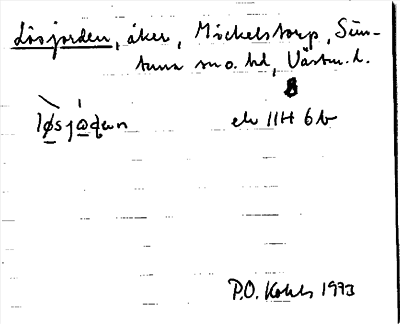 Lösjorden, åker, Mickelstorp, Sün-
tuna sn o. hd, Västm. l.
løsjɷḍan
ek 11H 6b
P.O. Kohls 1973